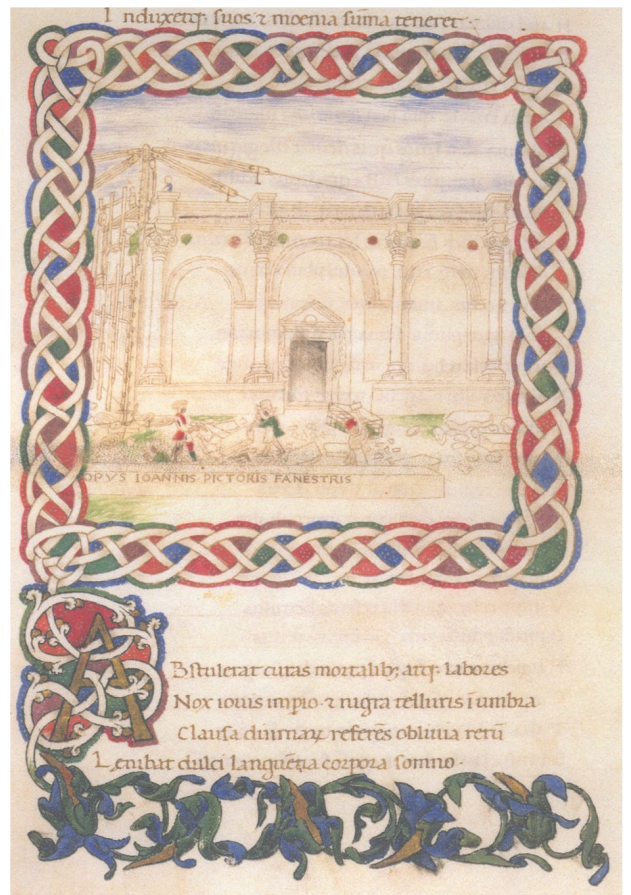 Induxetq; suos· ⁊ moenia sūma teneret·
OPVS IOANNIS·PICTORIS FANESTRIS
Abstulerat curas mortalib; atq; labores
Nox iouis impio· ⁊ nigra telluris ī umbra
Clausa diurnaꝝ referēs obliuia rerū
Lenibat dulci languētia corpora somno·